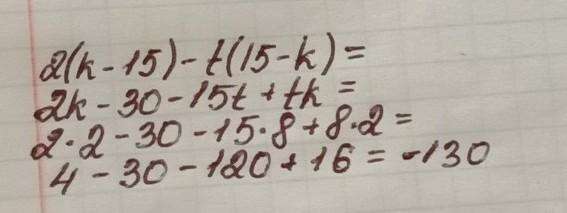 2(k-15)-t(15-k)=
2k-30-15t+tk=
2·2-30-15·8+8·2=
4-30-120+16=-130